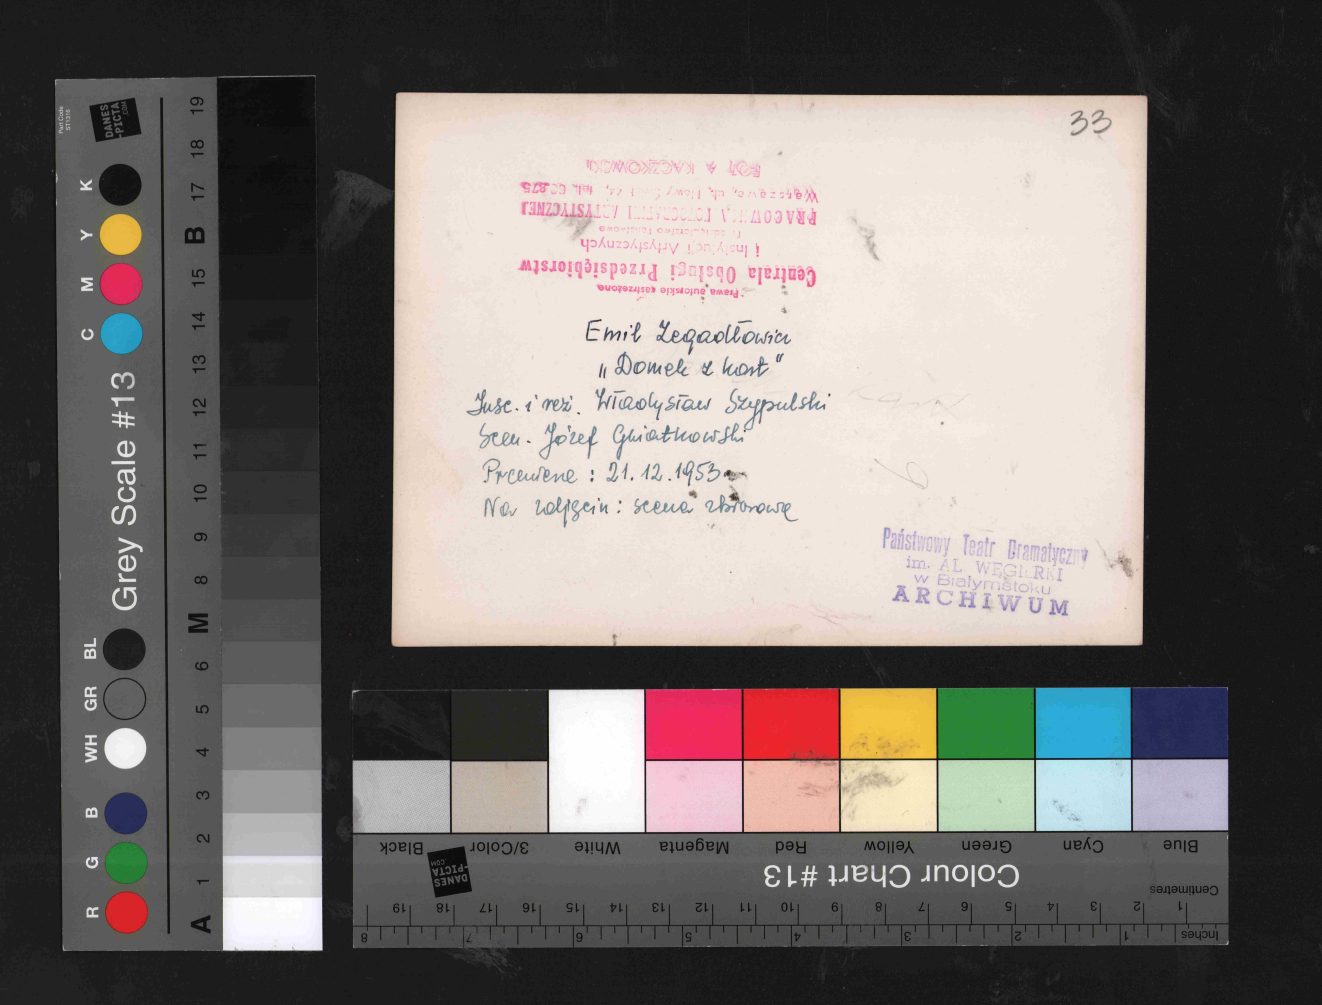 33
FOT. A. KACZKOWSKI
Warszawa, ul. Nowy Świat tel.
PRACOWNIA FOTOGRAFII ARTYSTYCZNEJ
Przedsiębiorstwo Państwowe
i Instytucji Artystycznych
Centrala Obsługi Przedsiębiorstw
Prawa autorskie zastrzeżone
Emil Zegadłowicz
„Domek z kart"
Insc. i reż. Władysław Szypulski
Scen. Józef Gniatkowski
Premiera : 21.12.1953
Na zdjęciu : scena zbiorowa
Państwowy Teatr Dramatyczny
im. AL. WĘGIERKI
w Białymstoku
ARCHIWUM
Part Code
ST1316
DANES
-PICTA
.COM
K
Y
M
C
Grey Scale #13
BL
GR
WH
B
G
R
19
18
17
B
15
14
13
12
11
10
9
8
M
6
5
4
3
2
1
A
Black 3/Color White Magenta Red Yellow Green Cyan Blue
DANES
-PICTA
.COM
Colour Chart #13
Centimetres
19 18 17 16 15 14 13 12 11 10 9 8 7 6 5 4 3 2 1
8 7 6 5 4 3 2 1 Inches